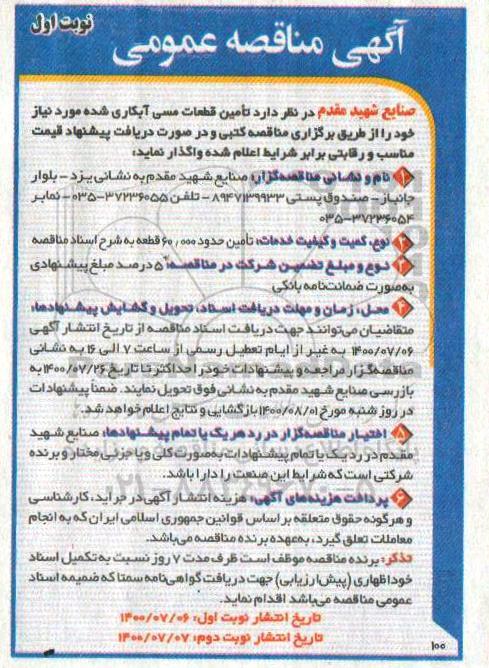 نوبت اول
آگهی مناقصه عمومی
صنایع شهید مقدم در نظر دارد تأمین قطعات مسی آبکاری شده مورد نیاز
خود را از طریق برگزاری مناقصه کتبی و در صورت دریافت پیشنهاد قیمت
مناسب و رقابتی برابر شرایط اعلام شده واگذار نماید:
۱ نام و نشانی مناقصه‌گزار: صنایع شهید مقدم به نشانی یزد - بلوار
جانباز - صندوق پستی ۸۹۴۷۱۳۹۹۳۳ - تلفن ۳۷۲۳۶۰۵۵-۰۳۵ - نمابر
۳۷۲۳۶۰۵۴-۰۳۵
۲ نوع، کمیت و کیفیت خدمات: تأمین حدود ۶۰,۰۰۰ قطعه به شرح اسناد مناقصه
۳ نوع و مبلغ تضمین شرکت در مناقصه: ۵ درصد مبلغ پیشنهادی
به‌صورت ضمانت‌نامه بانکی
۴ محل، زمان و مهلت دریافت اسناد، تحویل و گشایش پیشنهادها:
متقاضیان می‌توانند جهت دریافت اسناد مناقصه از تاریخ انتشار آگهی
۱۴۰۰/۰۷/۰۶ به غیر از ایام تعطیل رسمی از ساعت ۷ الی ۱۶ به نشانی
مناقصه‌گزار مراجعه و پیشنهادات خود را حداکثر تا تاریخ ۱۴۰۰/۰۷/۲۶ به
بازرسی صنایع شهید مقدم به نشانی فوق تحویل نمایند. ضمناً پیشنهادات
در روز شنبه مورخ ۱۴۰۰/۰۸/۰۱ بازگشایی و نتایج اعلام خواهد شد.
۵ اختیار مناقصه‌گزار در رد هر یک یا تمام پیشنهادها: صنایع شهید
مقدم در رد یک یا تمام پیشنهادات به‌صورت کلی و یا جزئی مختار و برنده
شرکتی است که شرایط این صنعت را دارا باشد.
۶ پرداخت هزینه‌های آگهی: هزینه انتشار آگهی در جراید، کارشناسی
و هرگونه حقوق متعلقه بر اساس قوانین جمهوری اسلامی ایران که به انجام
معاملات تعلق گیرد، به‌عهده برنده مناقصه می‌باشد.
تذکر: برنده مناقصه موظف است ظرف مدت ۷ روز نسبت به تکمیل اسناد
خوداظهاری (پیش‌ارزیابی) جهت دریافت گواهی‌نامه سمتا که ضمیمه اسناد
عمومی مناقصه می‌باشد اقدام نماید.
تاریخ انتشار نوبت اول: ۱۴۰۰/۰۷/۰۶
تاریخ انتشار نوبت دوم: ۱۴۰۰/۰۷/۰۷
۱۰۰